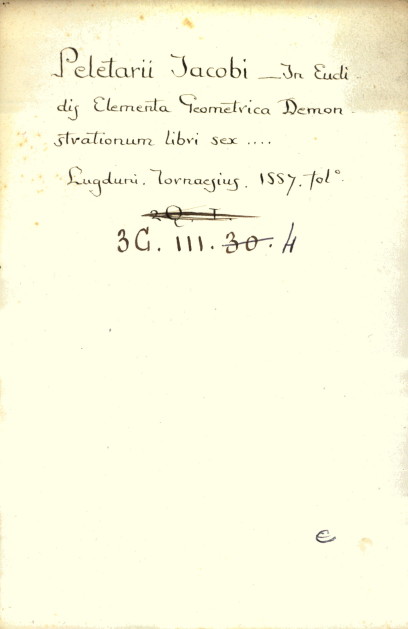 Peletarii Jacobi — In Eucli-
dis Elementa Geometrica Demon-
strationum libri sex ....
Lugduni. Tornaesius. 1557. fol°.
2Q. I.
3G. III. 30. 4
E